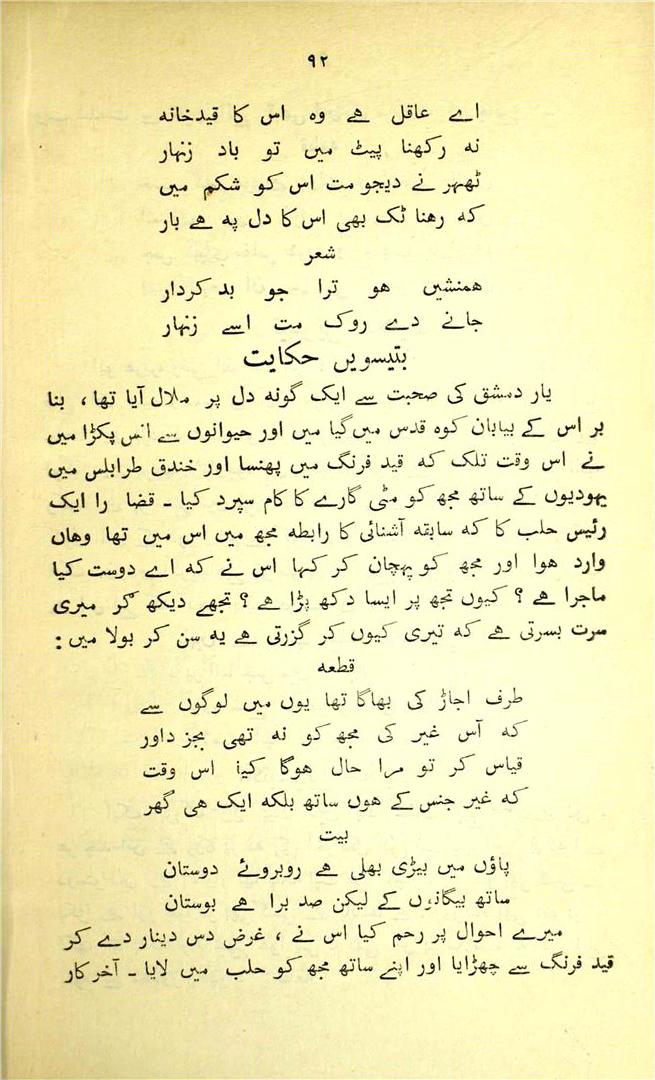 ۹۲
اے عاقل ہے وہ اس کا قیدخانہ
نہ رکھنا پیٹ میں تو باد زنہار
ٹھہر نے دیجو مت اس کو شکم میں
کہ رھنا ٹک بھی اس کا دل پہ ہے بار
شعر
ھمنشیں ھو ترا جو بد کردار
جانے دے روک مت اسے زنہار
بتیسویں حکایت
یار دمشق کی صحبت سے ایک گونہ دل پر ملال آیا تھا ، بنا
بر اس کے بیابان کوہ قدس میں گیا میں اور حیوانوں سے انس پکڑا میں
نے اس وقت تلک کہ قید فرنگ میں پھنسا اور خندق طرابلس میں
یہودیوں کے ساتھ مجھ کو مٹی گارے کا کام سپرد کیا ۔ قضا را ایک
رئیس حلب کا کہ سابقہ آشنائی کا رابطہ مجھ میں اس میں تھا وھاں
وارد ھوا اور مجھ کو پہچان کر کہا اس نے کہ اے دوست کیا
ماجرا ہے ؟ کیوں تجھ پر ایسا دکھ پڑا ہے ؟ تجھے دیکھ کر میری
سرت بسرتی ہے کہ تیری کیوں کر گزرتی ہے یہ سن کر بولا میں :
قطعہ
طرف اجاڑ کی بھاگا تھا یوں میں لوگوں سے
کہ آس غیر کی مجھ کو نہ تھی بجز داور
قیاس کر تو مرا حال ھوگا کیا اس وقت
کہ غیر جنس کے ھوں ساتھ بلکہ ایک ھی گھر
بیت
پاؤں میں بیڑی بھلی ہے روبروئے دوستان
ساتھ بیگانوں کے لیکن صد برا ہے بوستان
میرے احوال پر رحم کیا اس نے ، غرض دس دینار دے کر
قید فرنگ سے چھڑایا اور اپنے ساتھ مجھ کو حلب میں لایا ۔ آخر کار